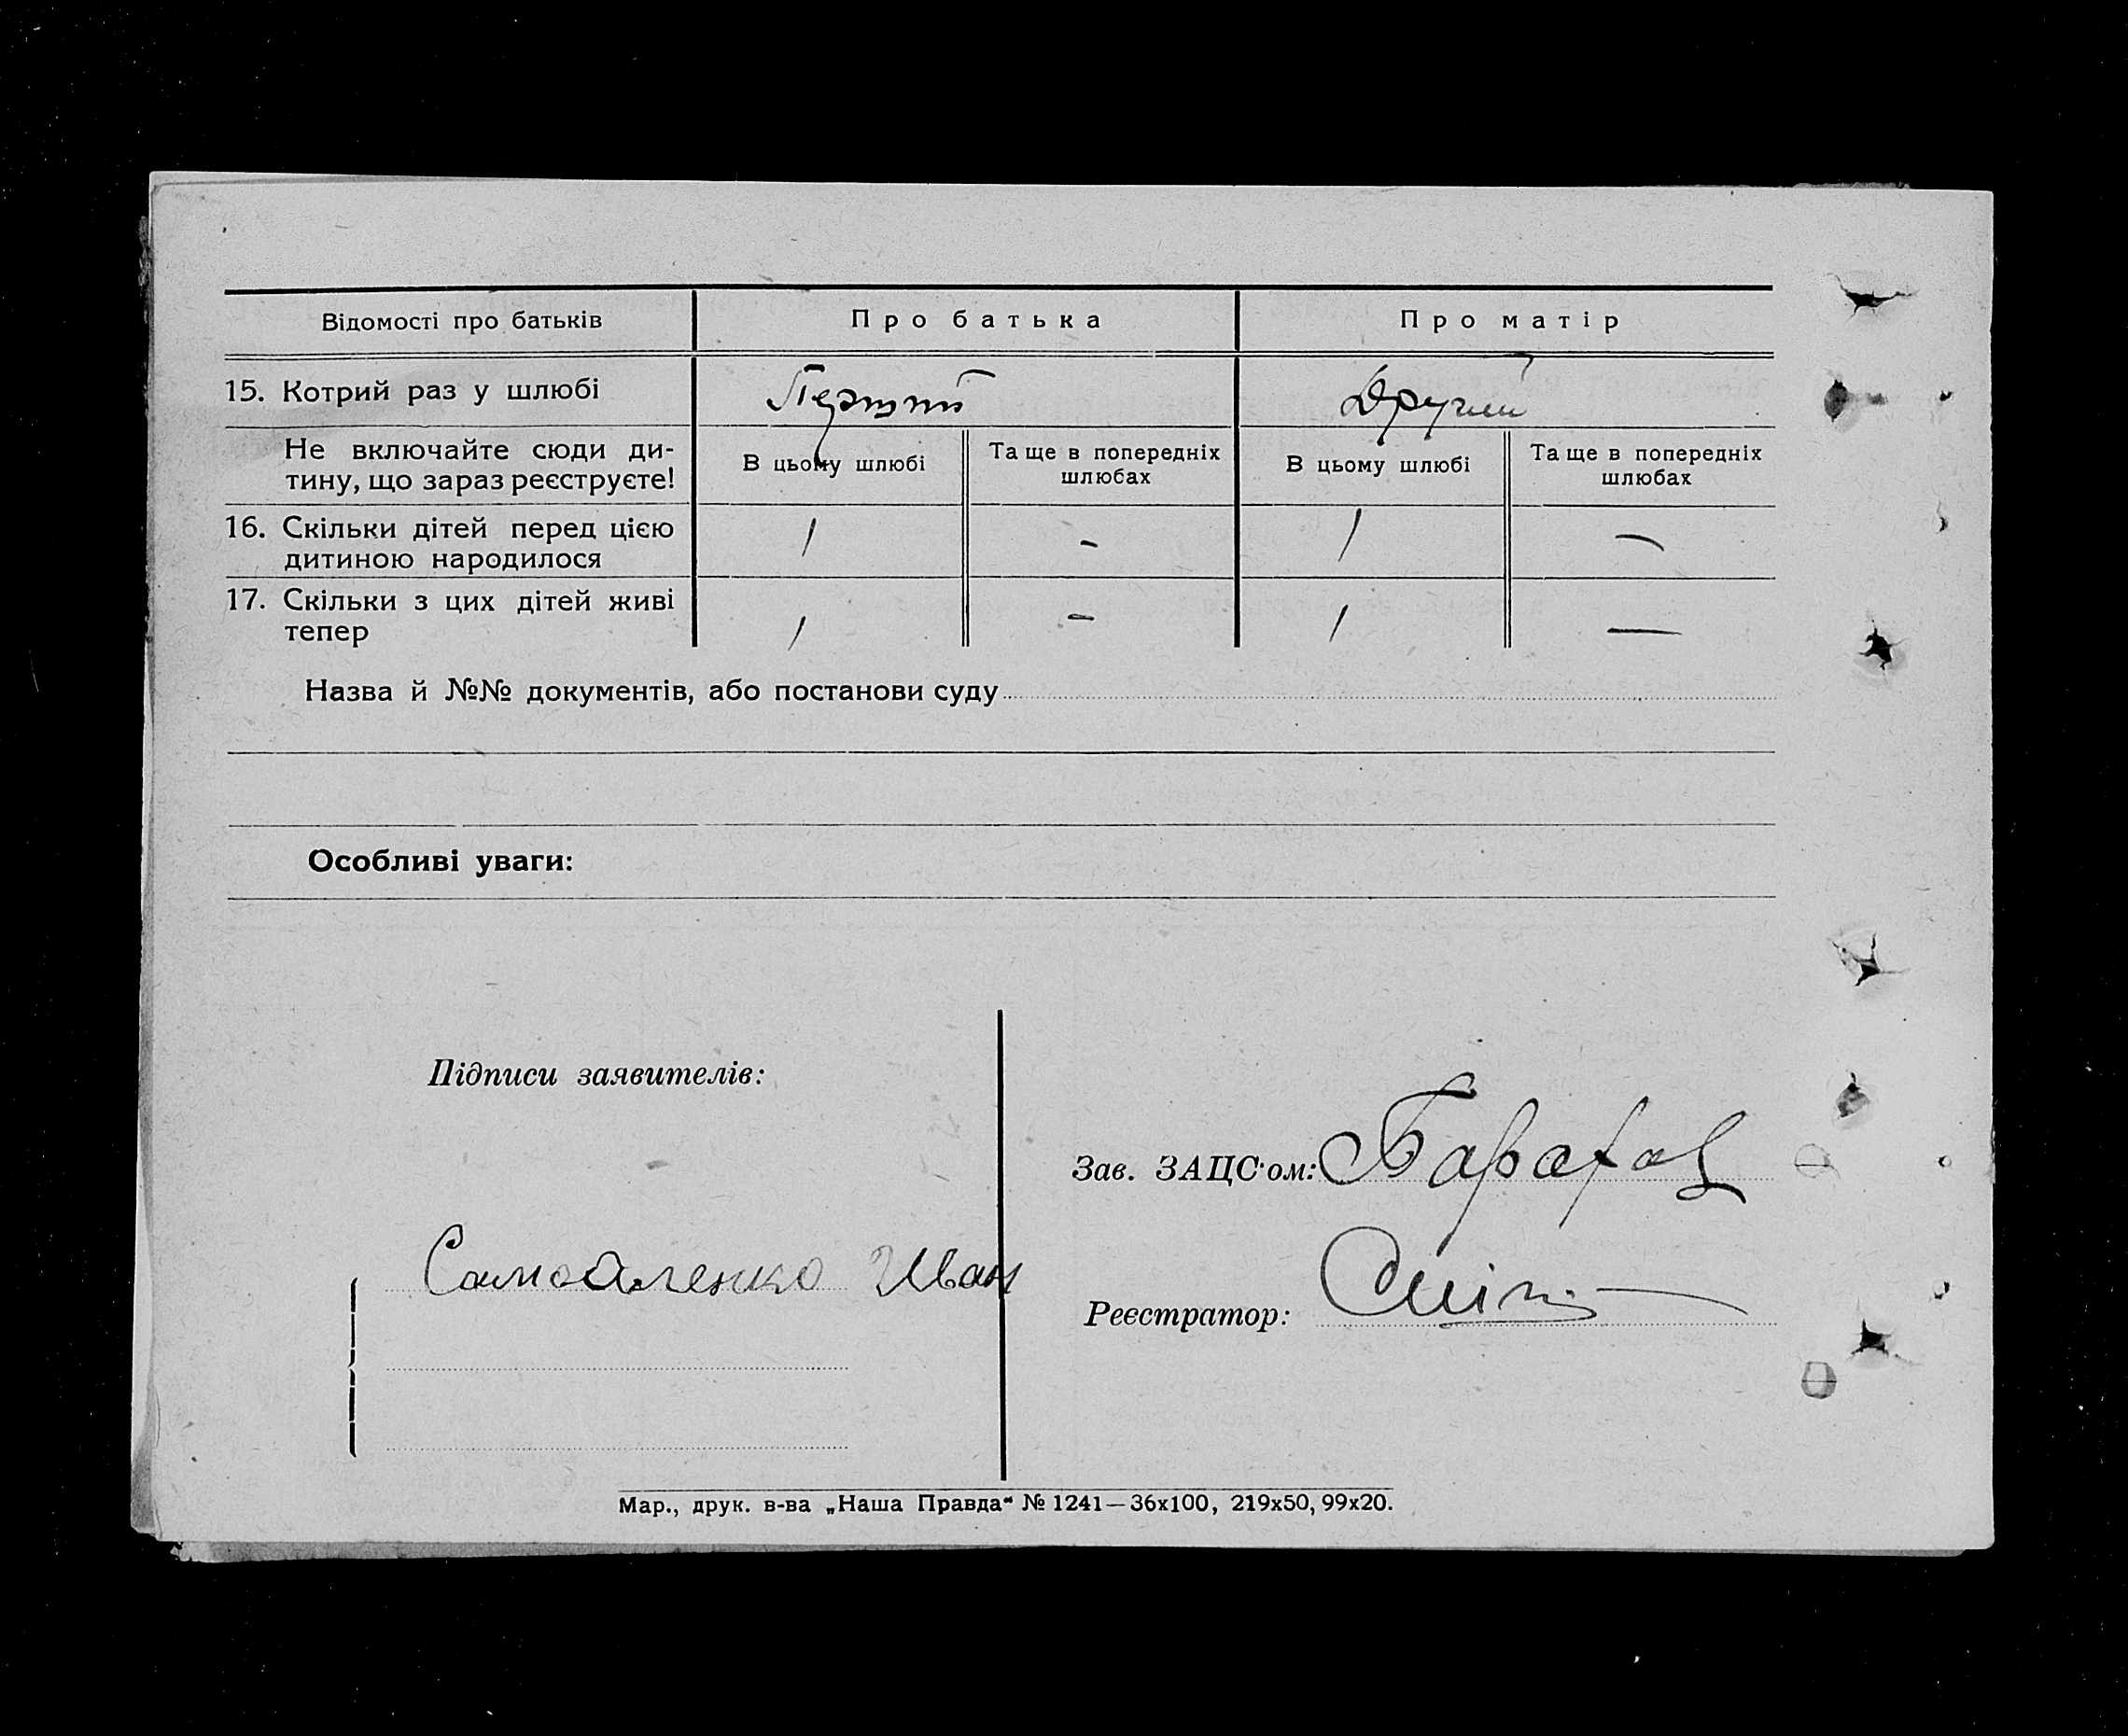 Відомості про батьків Про батька Про матір
15. Котрий раз у шлюбі Перший Другий
Не включайте сюди ди-
тину, що зараз реєструєте!
В цьому шлюбі Та ще в попередніх шлюбах В цьому шлюбі Та ще в попередніх шлюбах
16. Скільки дітей перед цією
дитиною народилося 1 - 1 —
17. Скільки з цих дітей живі
тепер 1 - 1 —
Назва й №№ документів, або постанови суду
Особливі уваги:
Підписи заявителів:
Зав. ЗАЦС'ом:
Самойленко Иван
Реєстратор:
Мар., друк. в-ва „Наша Правда" № 1241—36х100, 219х50, 99х20.